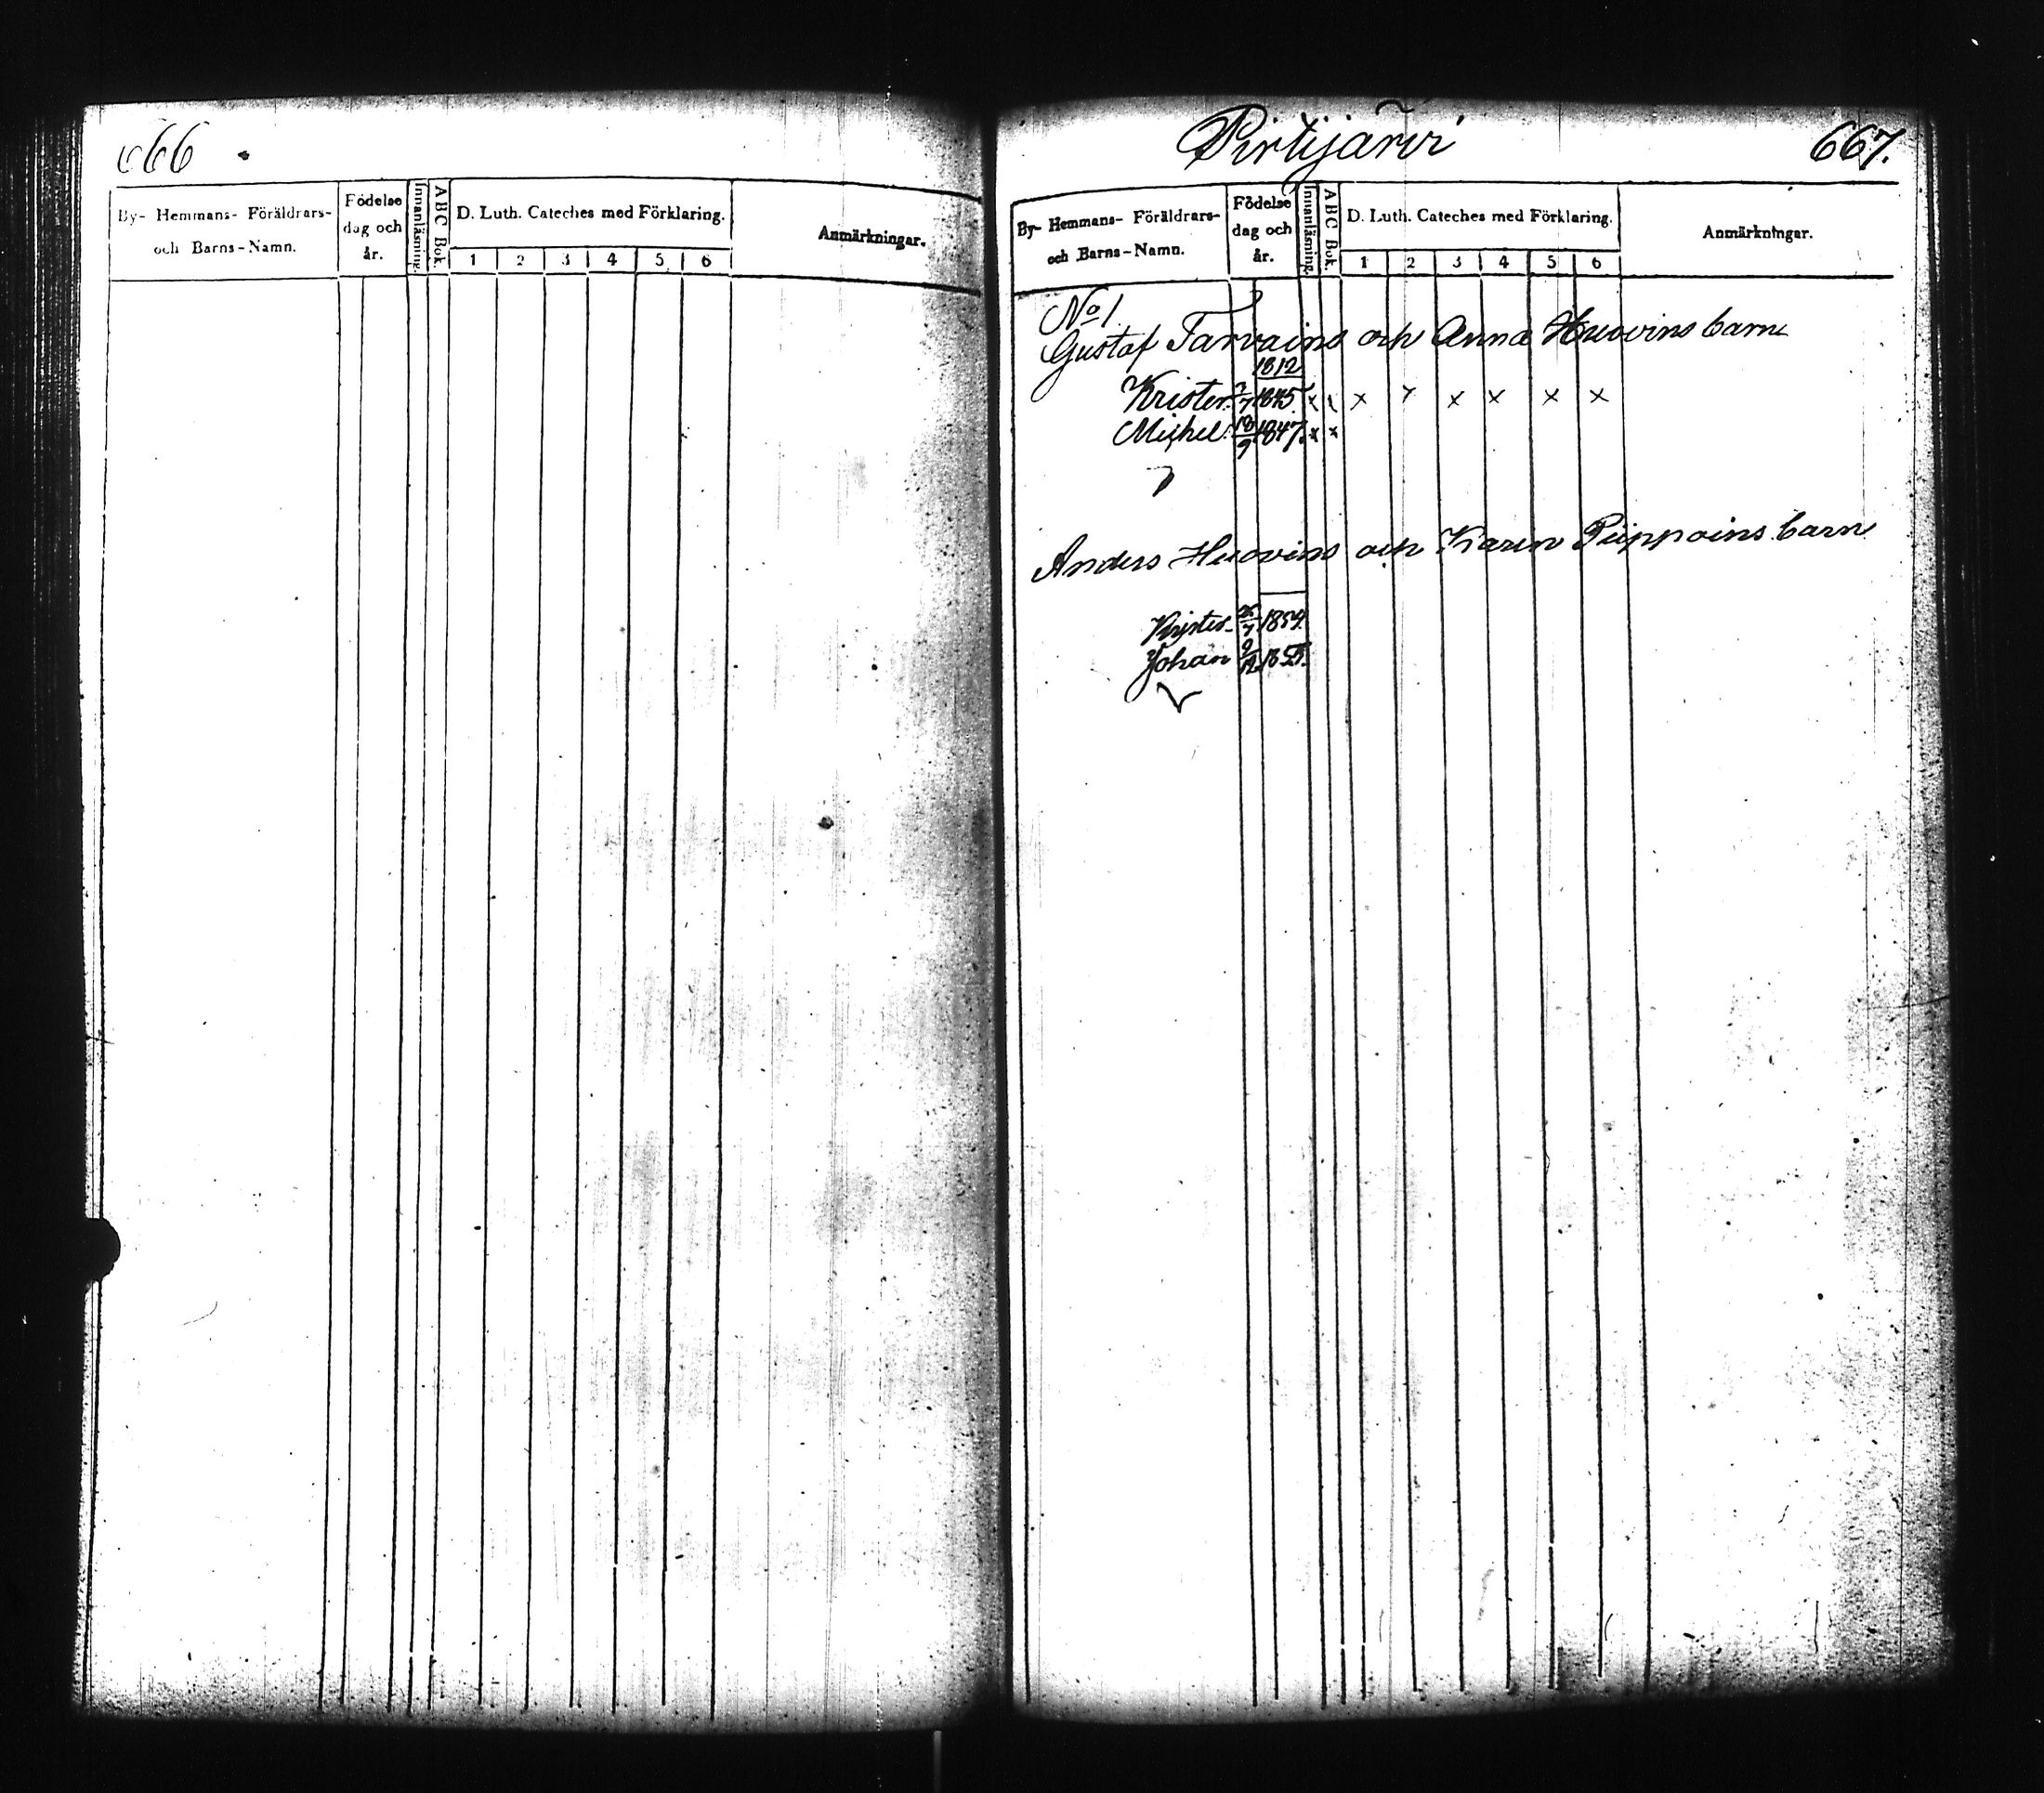 666
By- Hemmans- Föräldrars- och Barns-Namn.
Födelse dag och år.
Innanläsning.
ABC Bok.
D. Luth. Cateches med Förklaring.
1 2 3 4 5 6
Anmärkningar.
Pirtijärvi
667.
By- Hemmans- Föräldrars- och Barns-Namn.
Födelse dag och år.
Innanläsning.
ABC Bok.
D. Luth. Cateches med Förklaring.
1 2 3 4 5 6
Anmärkningar.
No 1
Gustaf Tarvains och Anna Huovins barn
1812
Krister 7/7 1845 x x x x x x x x
Michel 18/9 1847 x x
Anders Huovins och Karin Piippoins barn
Krister 1854
Johan 9/12 1855